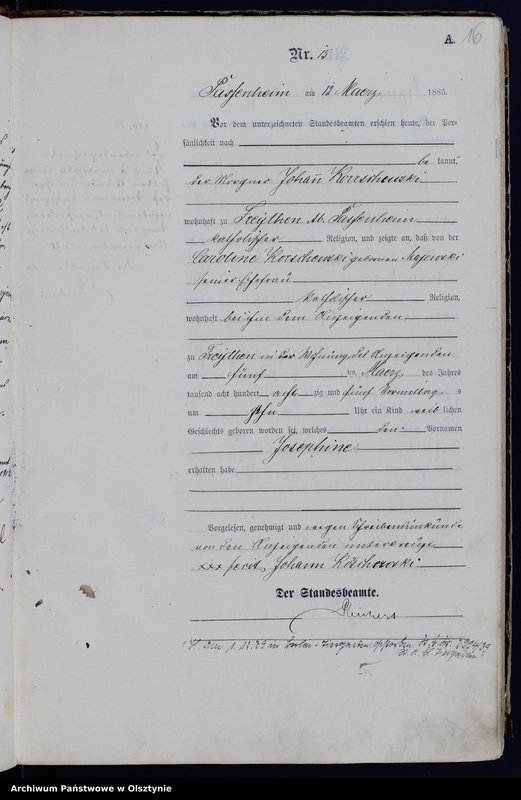 A. 16
Nr. 13
Passenheim am 12 Maerz 1885.
Vor dem unterzeichneten Standesbeamten erschien heute, der Per-
sönlichkeit nach
be kannt,
der Johann Korschewski
wohnhaft zu Passenheim
katholischer Religion, und zeigte an, daß von der
Caroline Korschewski gebornen Majewski
seiner Ehefrau
katholischer Religion,
wohnhaft bei ihm dem Anzeigenden
zu in der Wohnung des Anzeigenden
am fünf ten Maerz des Jahres
tausend acht hundert acht zig und fünf Vormittag s
um zehn Uhr ein Kind weib lichen
Geschlechts geboren worden sei, welches den Vornamen
Josephine
erhalten habe
Vorgelesen, genehmigt und wegen Schreibensunkunde
von dem Anzeigenden unterkreuzt
xxx fecit Johann
Der Standesbeamte.
1.12.39 in Berlin-
Archiwum Państwowe w Olsztynie